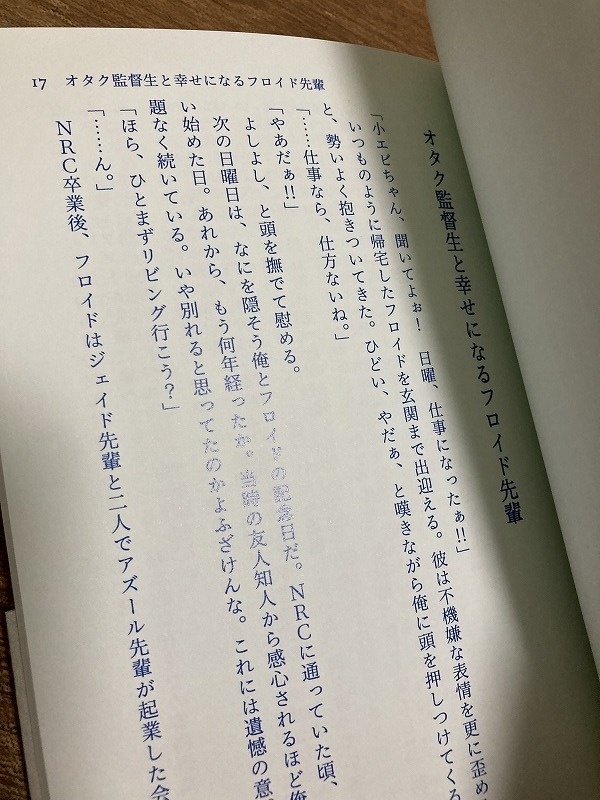 17　オタク監督生と幸せになるフロイド先輩
オタク監督生と幸せになるフロイド先輩
「小エビちゃん、聞いてよぉ！　日曜、仕事になったぁ!!」
いつものように帰宅したフロイドを玄関まで出迎える。彼は不機嫌な表情を更に歪め
と、勢いよく抱きついてきた。ひどい、やだぁ、と嘆きながら俺に頭を押しつけてくる
「……仕事なら、仕方ないね。」
「やあだぁ!!」
よしよし、と頭を撫でて慰める。
次の日曜日は、なにを隠そう俺とフロイドの記念日だ。ＮＲＣに通っていた頃、
い始めた日。あれから、もう何年経ったか。当時の友人知人から感心されるほど俺
題なく続いている。いや別れると思ってたのかよふざけんな。これには遺憾の意
「ほら、ひとまずリビング行こう？」
「……ん。」
ＮＲＣ卒業後、フロイドはジェイド先輩と二人でアズール先輩が起業した会